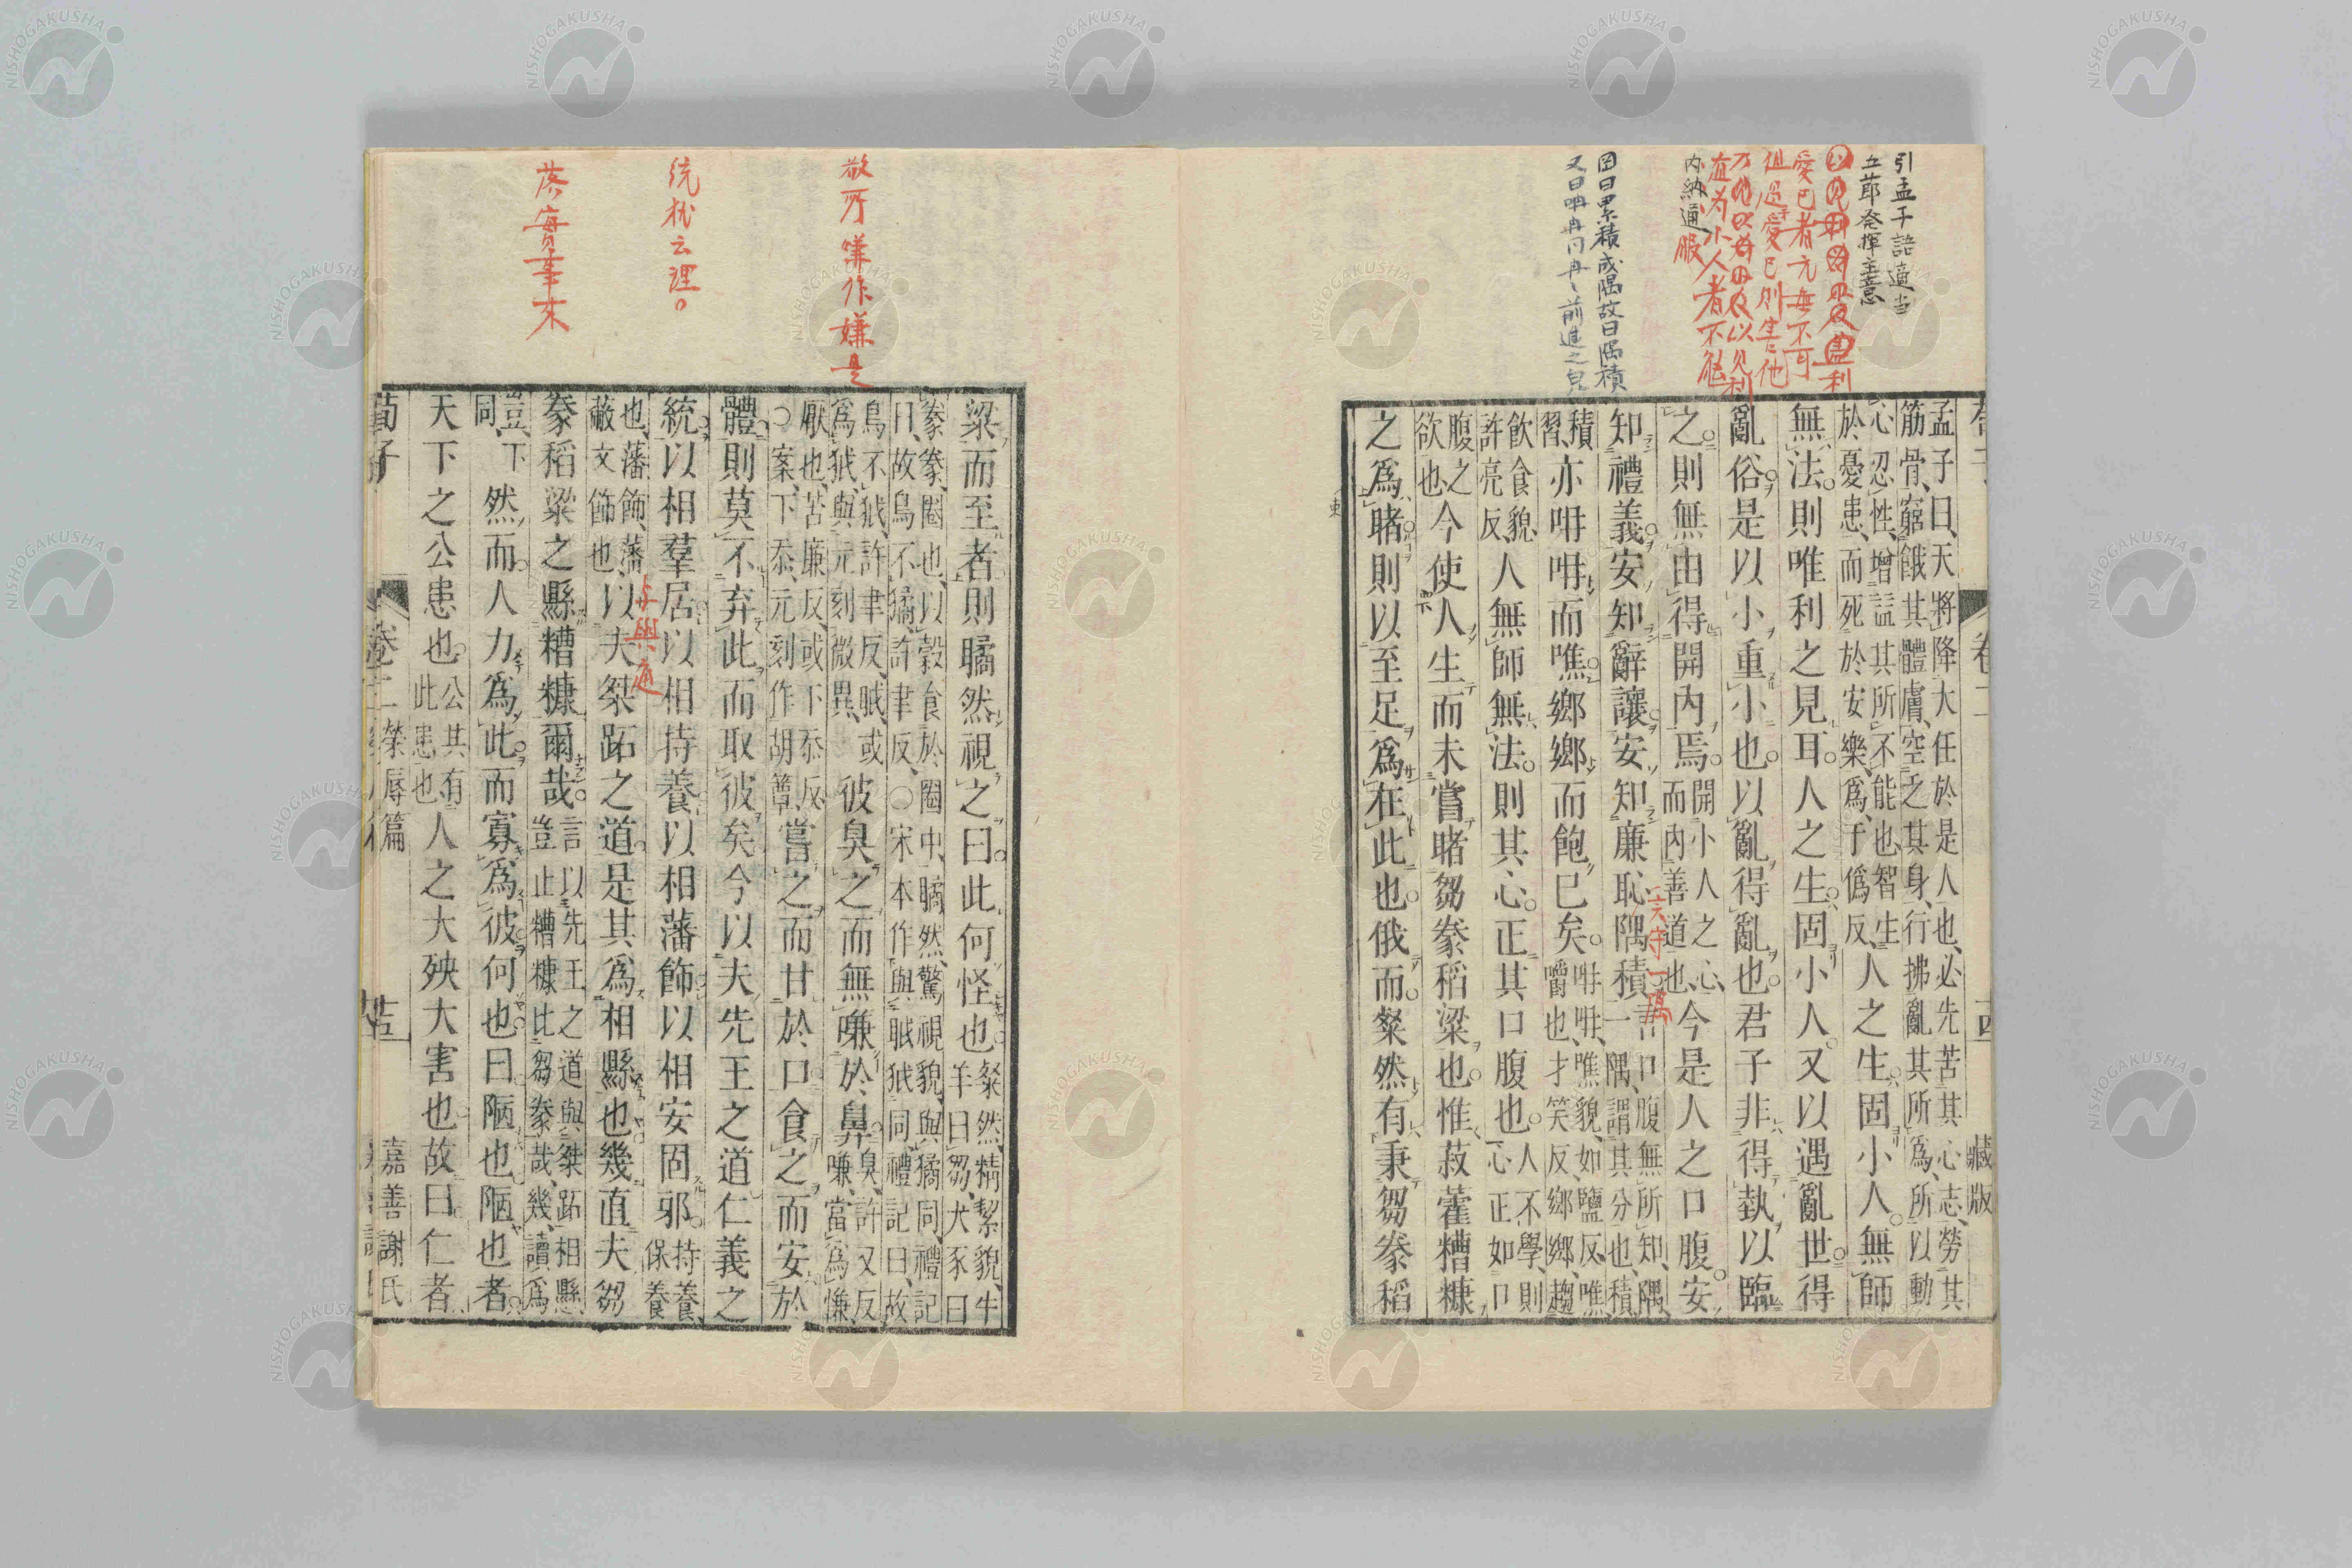 引孟子語適当
立節発揮主意
愛己者元無不可
但過愛己則害他
直为小人者不能
内納通
服
固曰累積成隅故曰隅積
又曰呥冉同冉〻前進之皃
孟子曰、天將降大任於是人也、必先苦其心志、勞其
筋骨、窮餓其體膚、空乏其身、行拂亂其所爲、所以動
心忍性、增益其所不能也、智生
於憂患、而死於安樂、爲、于僞反、
人之生。固小人。無師
無法。則唯利之見耳。人之生。固小人。又以遇亂世。得
亂俗。是以小重小也。以亂得亂也。君子非得埶以臨
之。則無由得開内焉。
開小人之心、
而内善道也、
今是人之口腹。安
知禮義。安知辭讓。安知廉恥隅積。
言口腹無所知、隅、
一隅、謂其分也、積、
積
習、
亦呥呥而噍。鄕鄕而飽已矣。
呥呥、噍貌、如鹽反、噍、
嚼也、才笑反、鄕鄕、趨
飲食貌、
許亮反、
人無師無法。則其心。正其口腹也。
人不學、則
心正如口
腹之
欲也、
今使人生而未嘗睹芻豢稻粱也。惟菽藿糟糠
之爲睹。則以至足爲在此也。俄而粲然有秉芻豢稻
藏版
嗛作嫌是
統
云理。
与與通
粱而至者。則瞲然視之曰。此何怪也。
粲然、精絜貌、牛
羊曰芻、犬豕曰
豢、豢、圈也、以穀食於圈中、瞲然、驚視貌、與獝同、禮記
曰、故鳥不獝、許聿反、〇宋本作與䀣狘同、禮記曰、故
鳥不狘、許聿反、䀣、或
爲狘與、元刻微異、
彼臭之而無嗛於鼻。
臭、許又反、
嗛、當爲慊、
厭也、苦廉反、或下忝反、
〇案下忝、元刻作胡簟、
嘗之而甘於口。食之而安於
體。則莫不弃此而取彼矣。今以夫先王之道。仁義之
統。以相羣居。以相持養。以相藩飾。以相安固邪。
持養、
保養
也、藩飾、藩
蔽文飾也、
以夫桀跖之道。是其爲相縣也。幾直夫芻
豢稻粱之縣糟糠爾哉。
言以先王之道與桀跖相縣、
豈止糟糠比芻豢哉、幾、讀爲
豈、下
同、
然而人力爲此而寡爲彼何也。曰陋也。陋也者。
天下之公患也。
公共有
此患也
人之大殃大害也。故曰。仁者
荀子
卷二
榮辱篇
嘉善謝氏